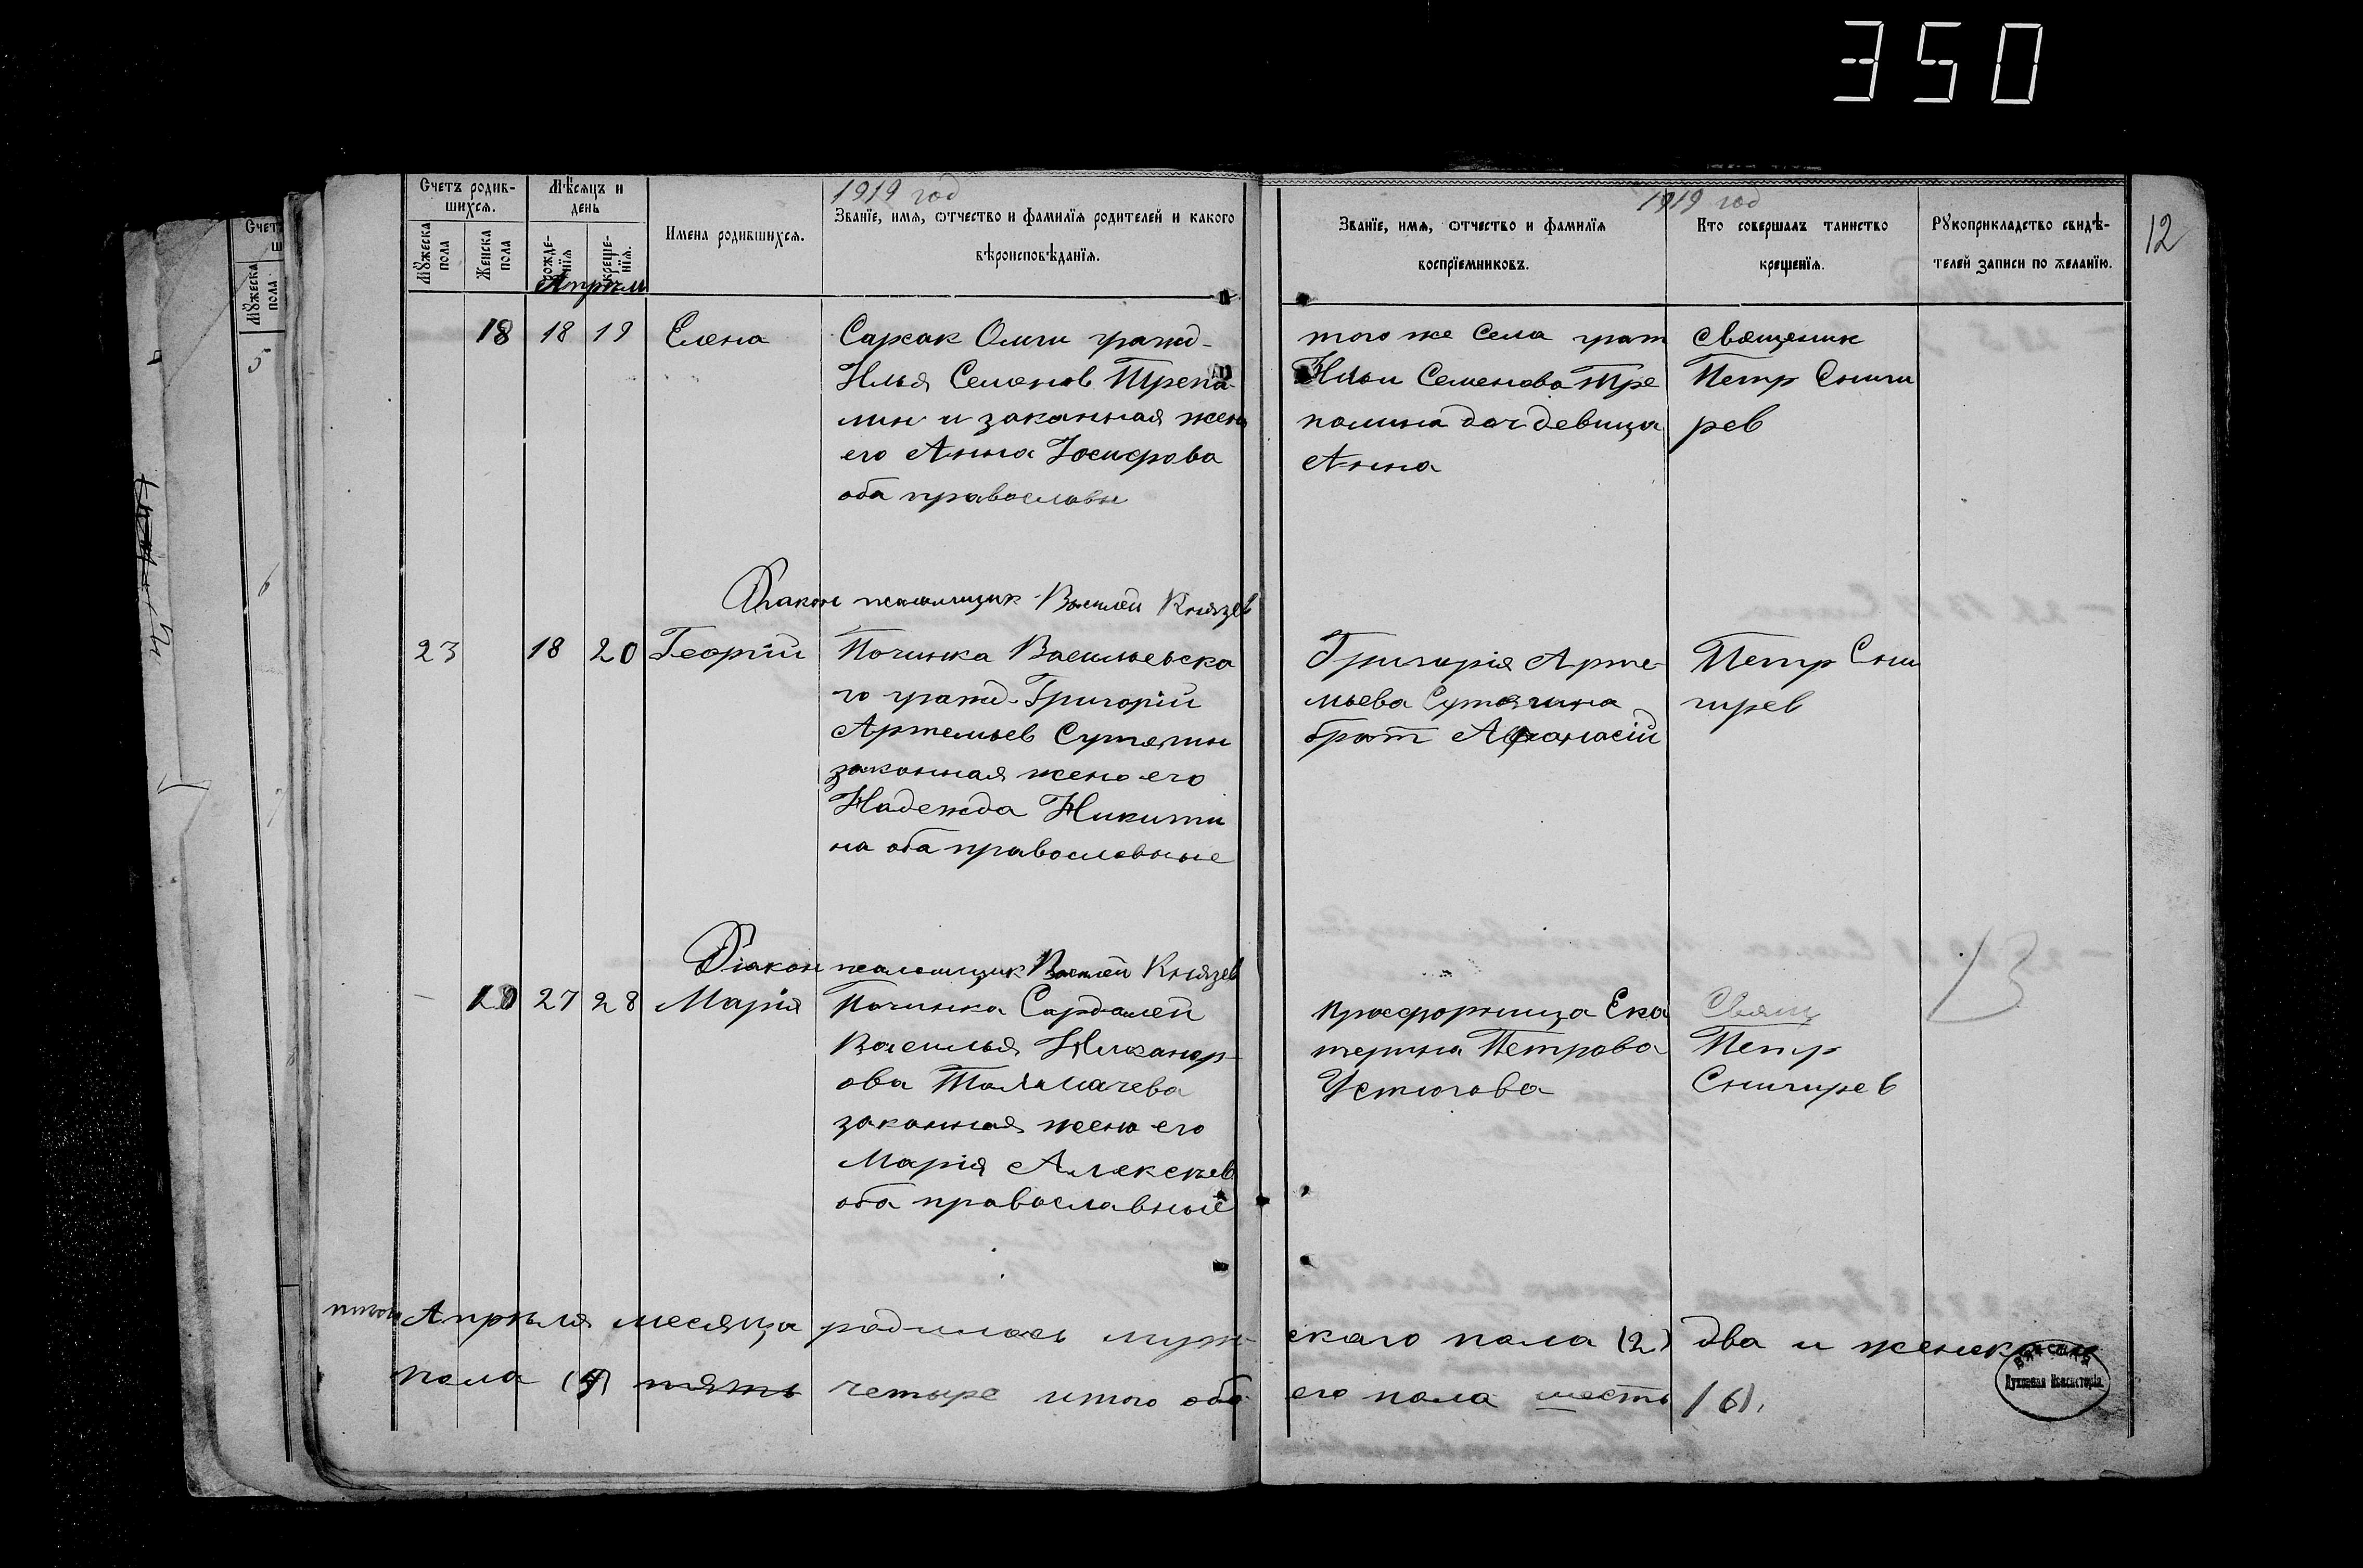 350
1919 год
1919 год
12
Счетъ родив-
шихся.
Мѣсяцъ и
день
Мужеска пола
Женска пола
рожде-
нія
креще-
нія.
Имена родившихся.
Званіе, имя, отчество и фамилія родителей и какого
вѣроисповѣданія.
Званіе, имя, отчество и фамилія
воспріемниковъ.
Кто совершалъ таинство
крещенія.
Рукоприкладство свидѣ-
телей записи по желанію.
Апрѣль
18 18 19 Елена
Сарсак Омги гражд-
Илья Семенов Трепа-
лин и законная жена
его Анна Іосифова
оба православн
того же села граж
Ильи Семенова Тре
палина доч девица
Анна
Священик
Петр Снигирев
Діакон псаломщик Василій Князев
23 18 20 Георгій
Починка Васильевска
го гражд. Григорій
Артемьев Сутягин
законная жена его
Надежда Никити
на оба православные
Григорія Арте-
мьева Сутягина
брат Афанасій
Петр Сни
гирев
Діакон псаломщик Василій Князев
19 27 28 Марія
Починка
Василья Никанор-
ова Толмачева
законная жена его
Марія Алексѣев
оба православные
просфорница Ека
терина Петрова
Устюгова
Свящ
Петр
Снигирев
13
итого Апрѣля месяца родилось муж-
скаго пола (2) два и женскаго
пола (4) пять четыре итого обо
его пола шесть (6).
Вятская
Духовная Консисторія
Счет
Мужеска пола
5
6